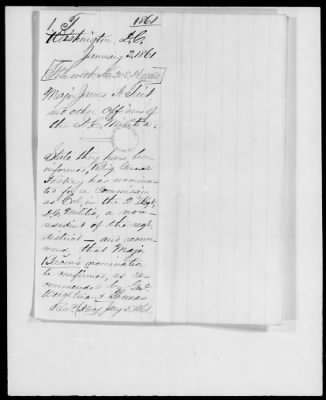 1. T 1861
Washington, D.C.
January 2, 1861
File with
Major James A.
and other Officers of
the D.C. Militia.
State they have been
informed, Brig. General
has nomina-
ted for a Commission
as Col. in the 2 Regt.
D.C. Militia, a non-
resident of the regtl
district — and recom-
mend that Major
nomination
be confirmed, as re-
commended by Genl.
Weightman &
Recd Jany 3, 1861.